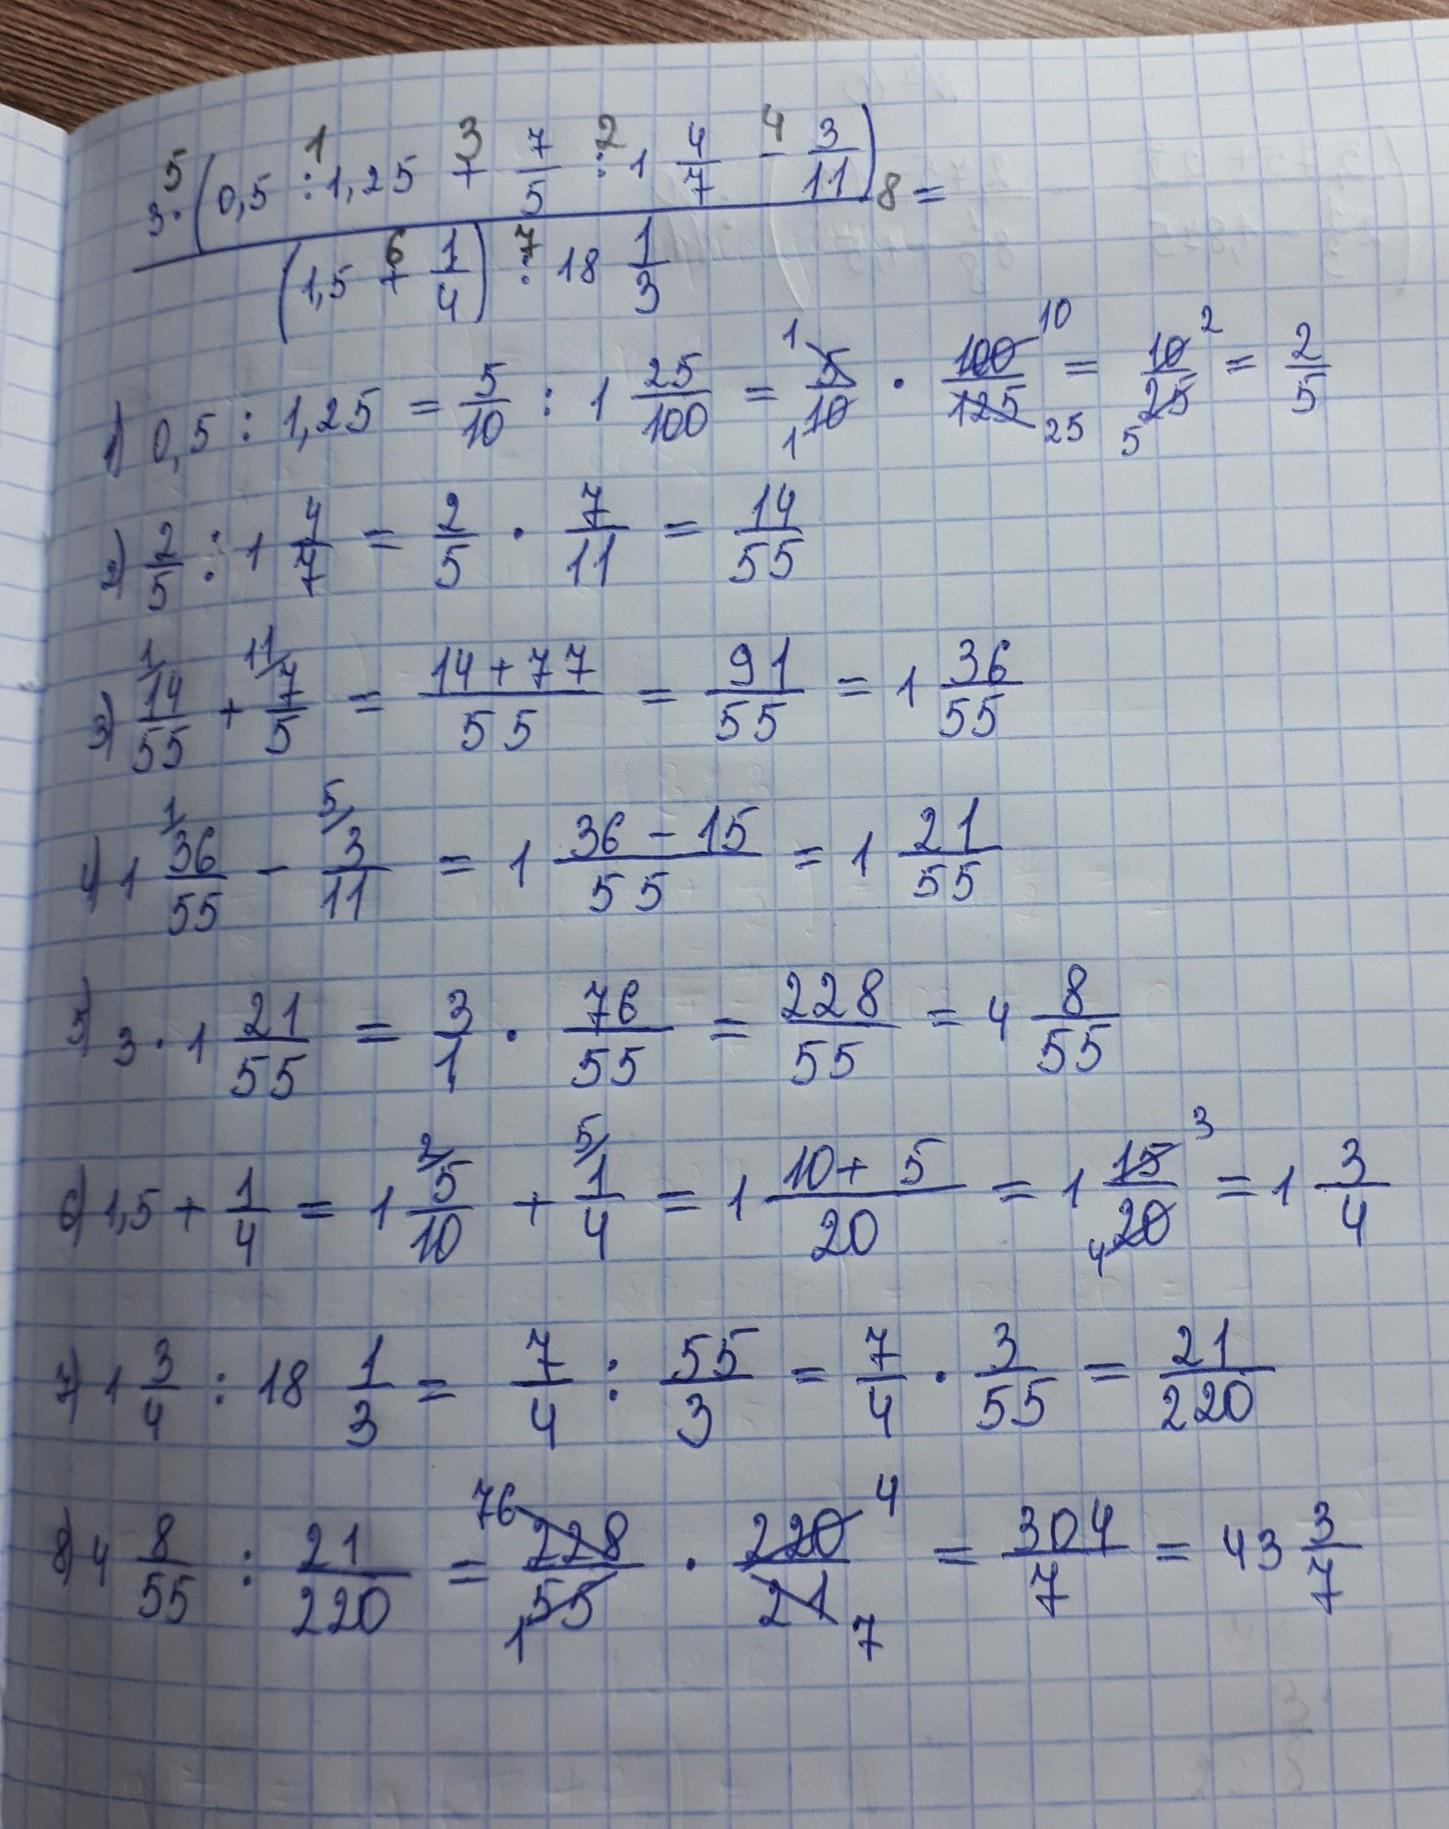 5 1 3 2 4
3·(0,5 : 1,25 + 7/5 : 1 4/7 - 3/11) 8 =
6 7
(1,5 + 1/4) : 18 1/3
1) 0,5 : 1,25 = 5/10 : 1 25/100 = 1 5/10 1 · 100/125 10 25 = 10/25 2 5 = 2/5
2) 2/5 : 1 4/7 = 2/5 · 7/11 = 14/55
3) 1/ 14/55 + 11/ 7/5 = 14+77/55 = 91/55 = 1 36/55
4) 1 1/ 36/55 - 5/ 3/11 = 1 36-15/55 = 1 21/55
5) 3 · 1 21/55 = 3/1 · 76/55 = 228/55 = 4 8/55
6) 1,5 + 1/4 = 1 2/ 5/10 + 5/ 1/4 = 1 10+5/20 = 1 15/20 3 4 = 1 3/4
7) 1 3/4 : 18 1/3 = 7/4 : 55/3 = 7/4 · 3/55 = 21/220
8) 4 8/55 : 21/220 = 76 228/55 1 · 220/21 4 7 = 304/7 = 43 3/7